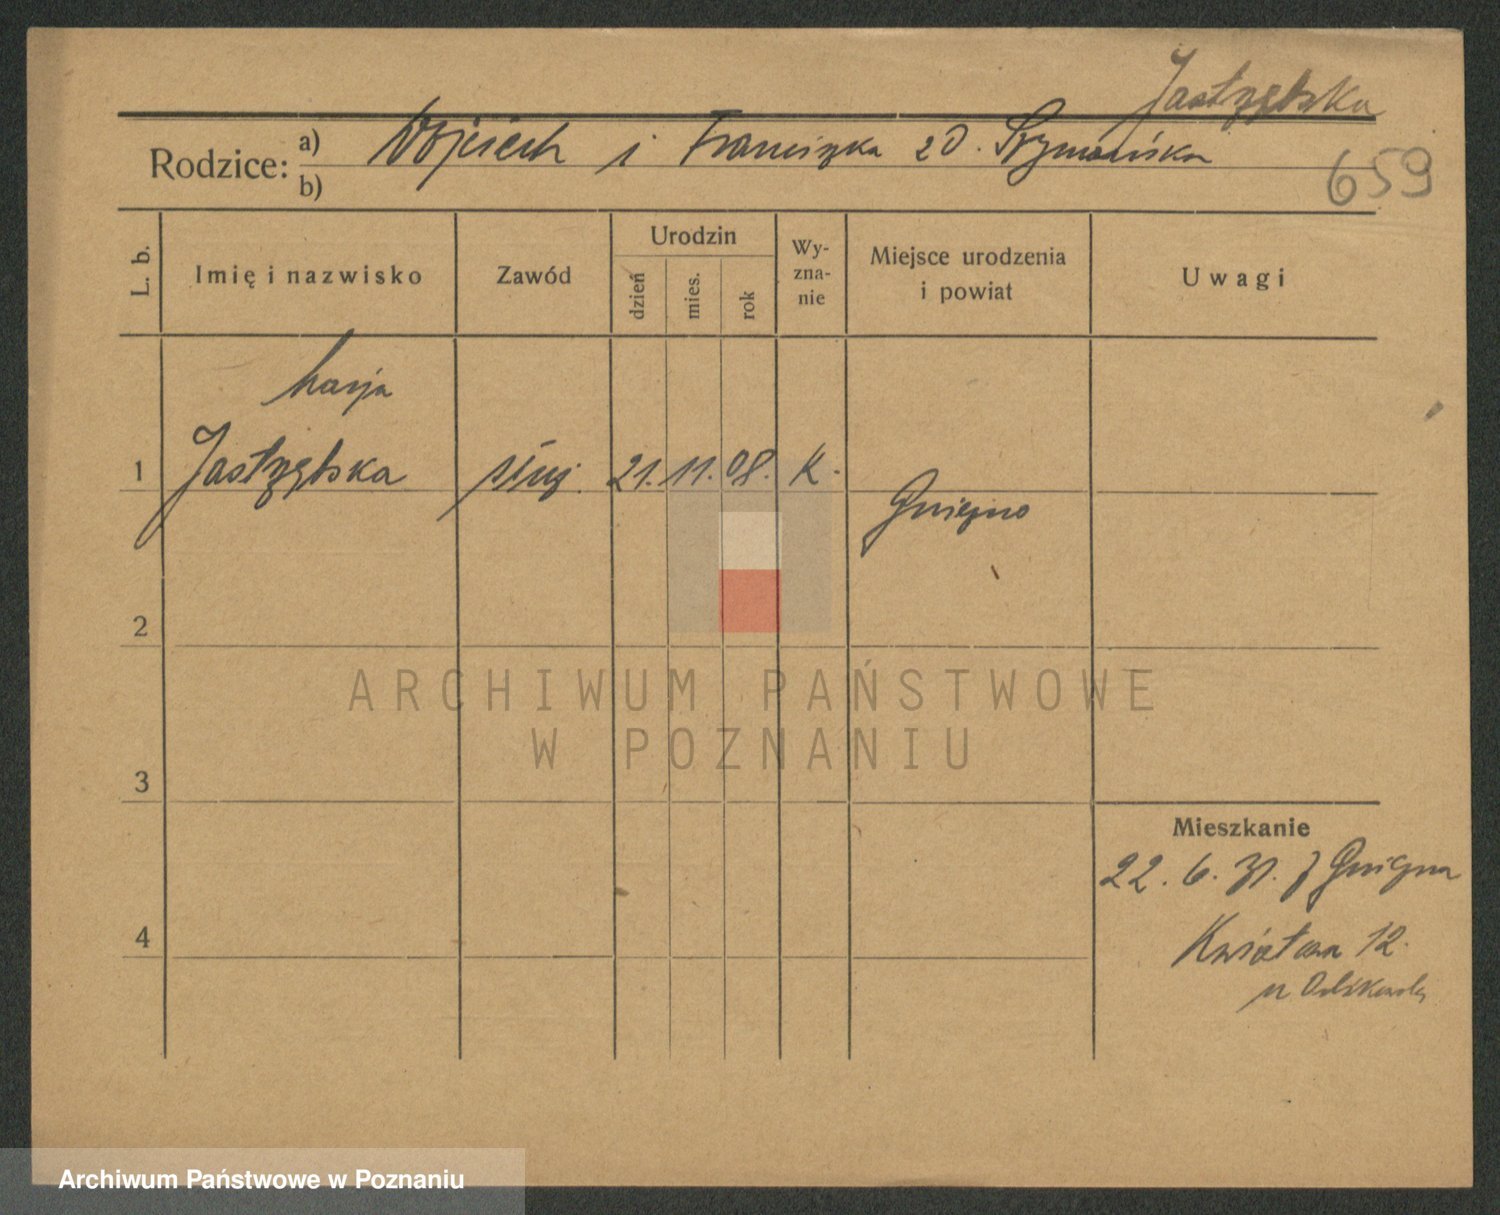 Jastrzębska
Rodzice: a) Wojciech i Franciszka zd. Szymańska
b)
659
L. b.
Imię i nazwisko
Zawód
Urodzin
dzień
mies.
rok
Wy-
zna-
nie
Miejsce urodzenia
i powiat
Uwagi
Marja
1 Jastrzębska służ. 21. 11. 08. K.
Gniezno
2
ARCHIWUM PAŃSTWOWE
W POZNANIU
3
Mieszkanie
22. 6. 31. z Gniezna
4
Kwiatowa 12.
u
Archiwum Państwowe w Poznaniu